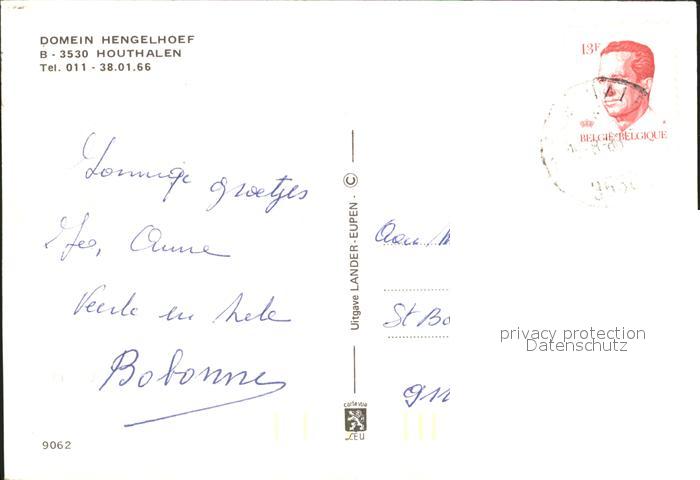 DOMEIN HENGELHOEF
B - 3530 HOUTHALEN
Tel. 011 - 38.01.66
13F
BELGIË-BELGIQUE
Zonnige groetjes
Jeo, Anne
Veerle en Lode
Bobonne
Uitgave LANDER-EUPEN - ©
Aan
St Bo
91
privacy protection
Datenschutz
carte vue
LEU
9062